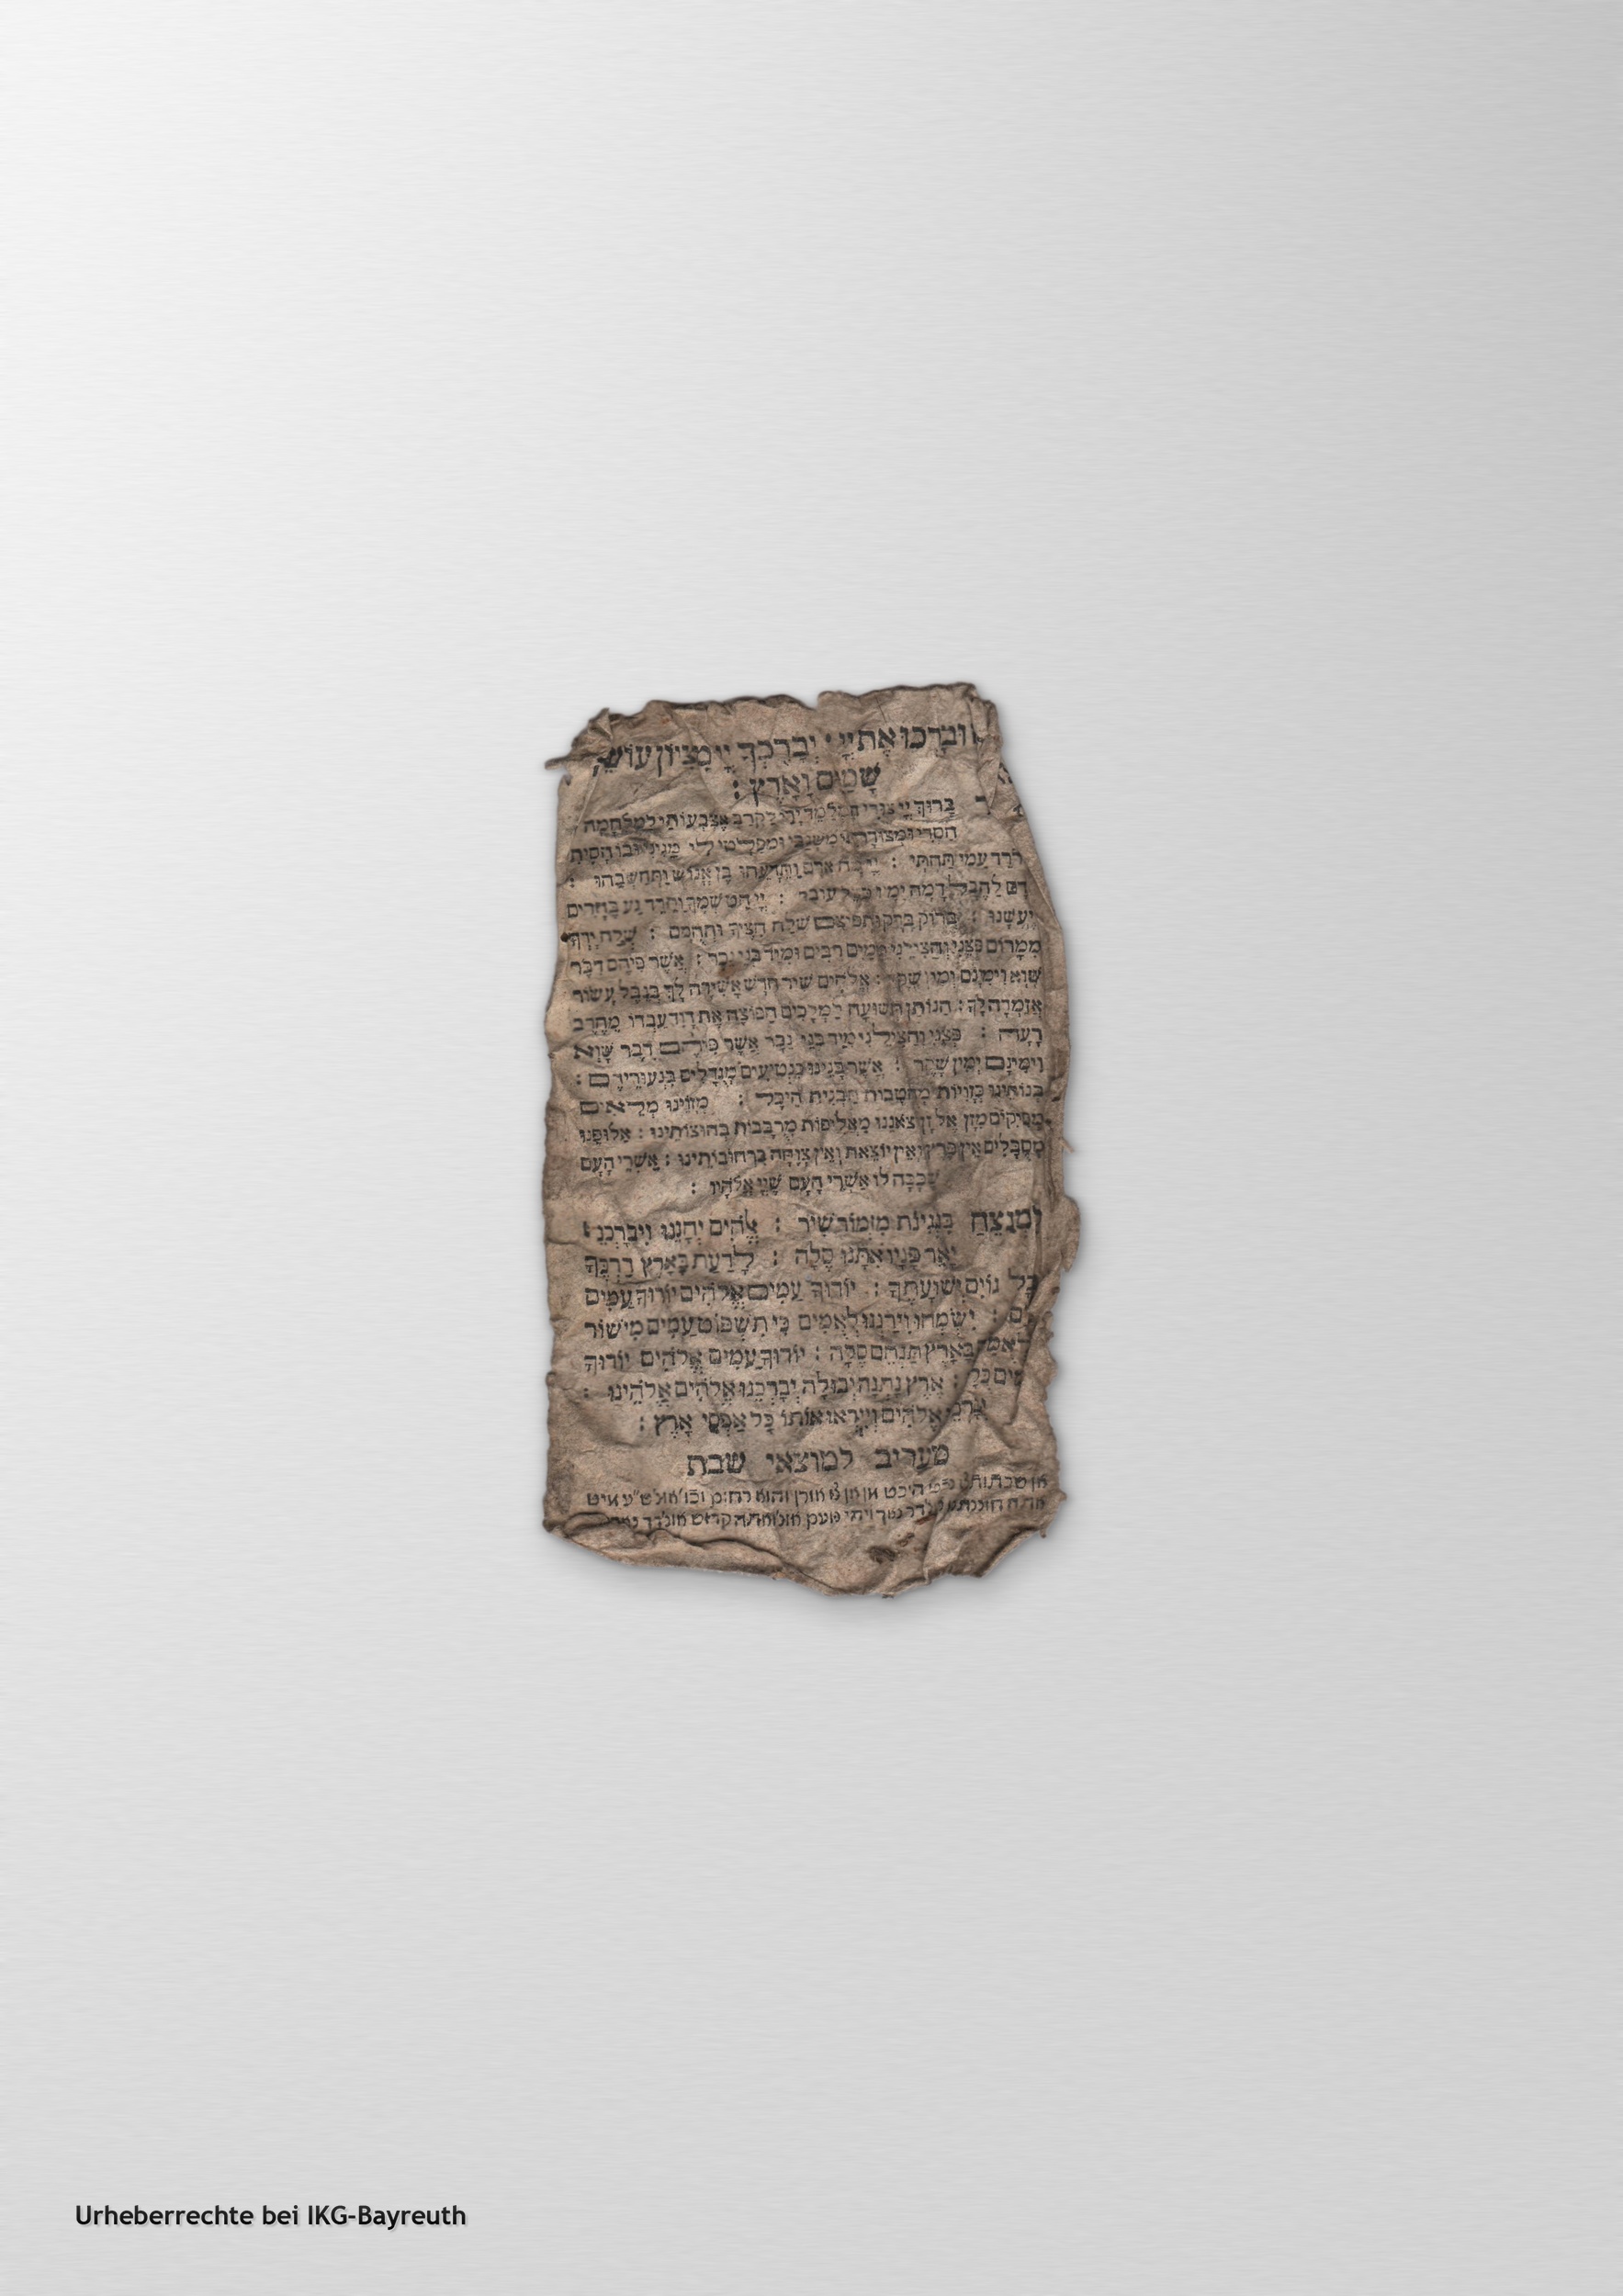 וּבָרְכוּ אֶת יְיָ : יְבָרֶכְךָ יְיָ מִצִּיּוֹן עוֹשֵׂה
שָׁמַיִם וָאָרֶץ :
בָּרוּךְ יְיָ צוּרִי הַמְלַמֵּד יָדַי לַקְרָב אֶצְבְּעוֹתַי לַמִּלְחָמָה
חַסְדִּי וּמְצוּדָתִי מִשְׂגַּבִּי וּמְפַלְטִי לִי מָגִינִּי וּבוֹ חָסִיתִי
עַמִּי תַחְתָּי : יְיָ מָה אָדָם וַתֵּדָעֵהוּ בֶּן אֱנוֹשׁ וַתְּחַשְּׁבֵהוּ :
לַהֶבֶל דָּמָה יָמָיו כְּצֵל עוֹבֵר : יְיָ הַט שָׁמֶיךָ וְתֵרֵד גַּע בֶּהָרִים
וְיֶעֱשָׁנוּ : בְּרוֹק בָּרָק וּתְפִיצֵם שְׁלַח חִצֶּיךָ וּתְהֻמֵּם : שְׁלַח יָדֶךָ
מִמָּרוֹם פְּצֵנִי וְהַצִּילֵנִי מִמַּיִם רַבִּים וּמִיַּד בְּנֵי נֵכָר : אֲשֶׁר פִּיהֶם דִּבֶּר
שָׁוְא וִימִינָם יְמִין שָׁקֶר : אֱלֹהִים שִׁיר חָדָשׁ אָשִׁירָה לָּךְ בְּנֵבֶל עָשׂוֹר
אֲזַמְּרָה לָּךְ : הַנּוֹתֵן תְּשׁוּעָה לַמְּלָכִים הַפּוֹצֶה אֶת דָּוִד עַבְדּוֹ מֵחֶרֶב
רָעָה : פְּצֵנִי וְהַצִּילֵנִי מִיַּד בְּנֵי נֵכָר אֲשֶׁר פִּיהֶם דִּבֶּר שָׁוְא
וִימִינָם יְמִין שָׁקֶר : אֲשֶׁר בָּנֵינוּ כִּנְטִיעִים מְגֻדָּלִים בִּנְעוּרֵיהֶם :
בְּנוֹתֵינוּ כְזָוִיּוֹת מְחֻטָּבוֹת תַּבְנִית הֵיכָל : מְזָוֵינוּ מְלֵאִים
מְפִיקִים מִזַּן אֶל זַן צֹאנֵנוּ מַאֲלִיפוֹת מְרֻבָּבוֹת בְּחוּצוֹתֵינוּ : אַלּוּפֵנוּ
מְסֻבָּלִים אֵין פֶּרֶץ וְאֵין יוֹצֵאת וְאֵין צְוָחָה בִּרְחוֹבוֹתֵינוּ : אַשְׁרֵי הָעָם
שֶׁכָּכָה לּוֹ אַשְׁרֵי הָעָם שֶׁיְיָ אֱלֹהָיו :
לַמְנַצֵּחַ בִּנְגִינוֹת מִזְמוֹר שִׁיר : אֱלֹהִים יְחָנֵּנוּ וִיבָרְכֵנוּ
יָאֵר פָּנָיו אִתָּנוּ סֶלָה : לָדַעַת בָּאָרֶץ דַּרְכֶּךָ
בְּכָל גּוֹיִם יְשׁוּעָתֶךָ : יוֹדוּךָ עַמִּים אֱלֹהִים יוֹדוּךָ עַמִּים
כֻּלָּם : יִשְׂמְחוּ וִירַנְּנוּ לְאֻמִּים כִּי תִשְׁפּוֹט עַמִּים מִישׁוֹר
וּלְאֻמִּים בָּאָרֶץ תַּנְחֵם סֶלָה : יוֹדוּךָ עַמִּים אֱלֹהִים יוֹדוּךָ
עַמִּים כֻּלָּם : אֶרֶץ נָתְנָה יְבוּלָהּ יְבָרְכֵנוּ אֱלֹהִים אֱלֹהֵינוּ :
יְבָרְכֵנוּ אֱלֹהִים וְיִירְאוּ אוֹתוֹ כָּל אַפְסֵי אָרֶץ :
מעריב למוצאי שבת
והוא רחום
Urheberrechte bei IKG-Bayreuth